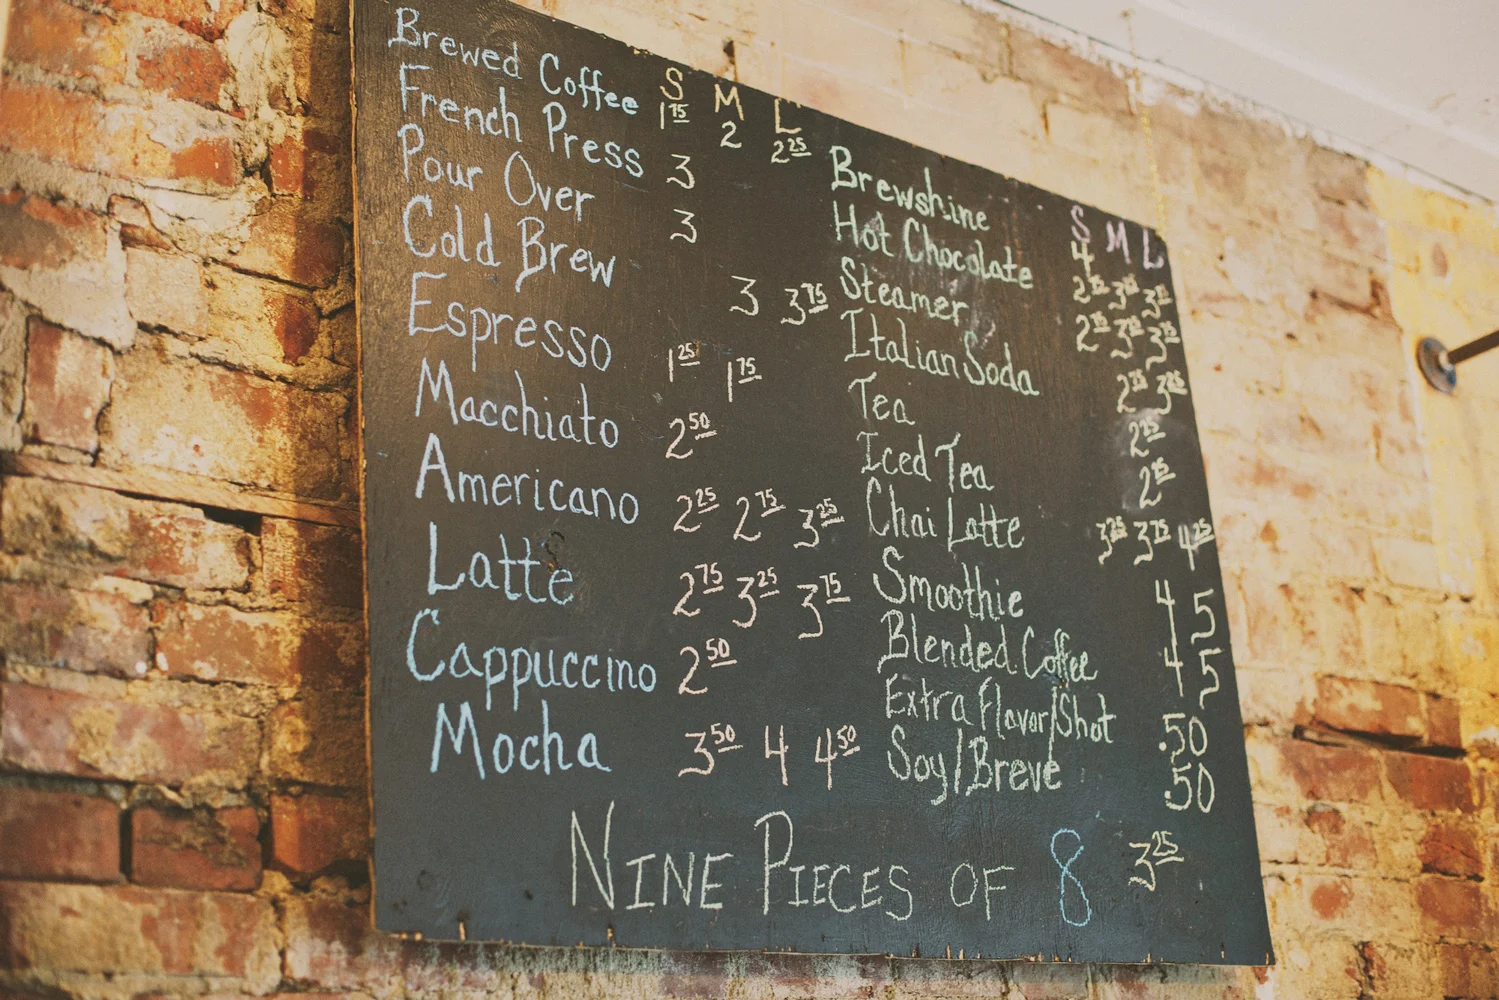 S M L
Brewed Coffee 1 75 2 2 25
French Press 3
Pour Over 3
Cold Brew 3 3 75
Espresso 1 25 1 75
Macchiato 2 50
Americano 2 25 2 75 3 25
Latte 2 75 3 25 3 75
Cappuccino 2 50
Mocha 3 50 4 4 50
S M L
Brewshine 4
Hot Chocolate 2 3 3
Steamer 2 3 3
Italian Soda 2 3
Tea 2
Iced Tea 2
Chai Latte 3 25 3 75 4 25
Smoothie 4 5
Blended Coffee 4 5
Extra Flavor/Shot .50
Soy/Breve .50
NINE PIECES OF 8 3 25